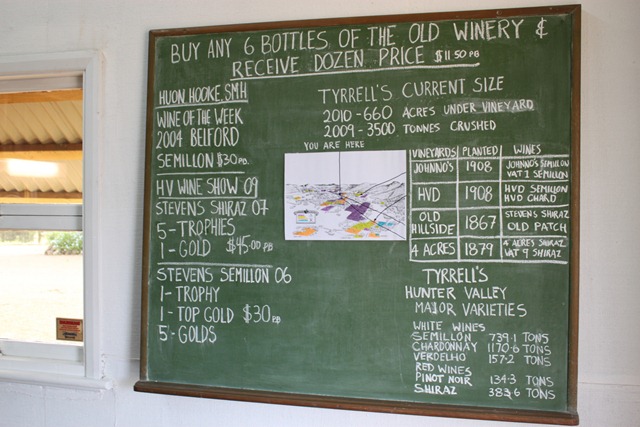 BUY ANY 6 BOTTLES OF THE OLD WINERY &
RECEIVE DOZEN PRICE $11.50 PB
HUON HOOKE, SMH
WINE OF THE WEEK
2004 BELFORD
SEMILLON $30 PB.
HV WINE SHOW 09
STEVENS SHIRAZ 07
5 - TROPHIES
1 - GOLD $45.00 PB
STEVENS SEMILLON 06
1 - TROPHY
1 - TOP GOLD $30 PB
5 - GOLDS
TYRRELL'S CURRENT SIZE
2010 - 660 ACRES UNDER VINEYARD
2009 - 3500 TONNES CRUSHED
YOU ARE HERE
VINEYARDS PLANTED WINES
JOHNNO'S 1908 JOHNNO'S SEMILLON
VAT 1 SEMILLON
HVD 1908 HVD SEMILLON
HVD CHARD
OLD HILLSIDE 1867 STEVENS SHIRAZ
OLD PATCH
4 ACRES 1879 4 ACRES SHIRAZ
VAT 9 SHIRAZ
TYRRELL'S
HUNTER VALLEY
MAJOR VARIETIES
WHITE WINES
SEMILLON 739.1 TONS
CHARDONNAY 1170.6 TONS
VERDELHO 157.2 TONS
RED WINES
PINOT NOIR 134.3 TONS
SHIRAZ 383.6 TONS